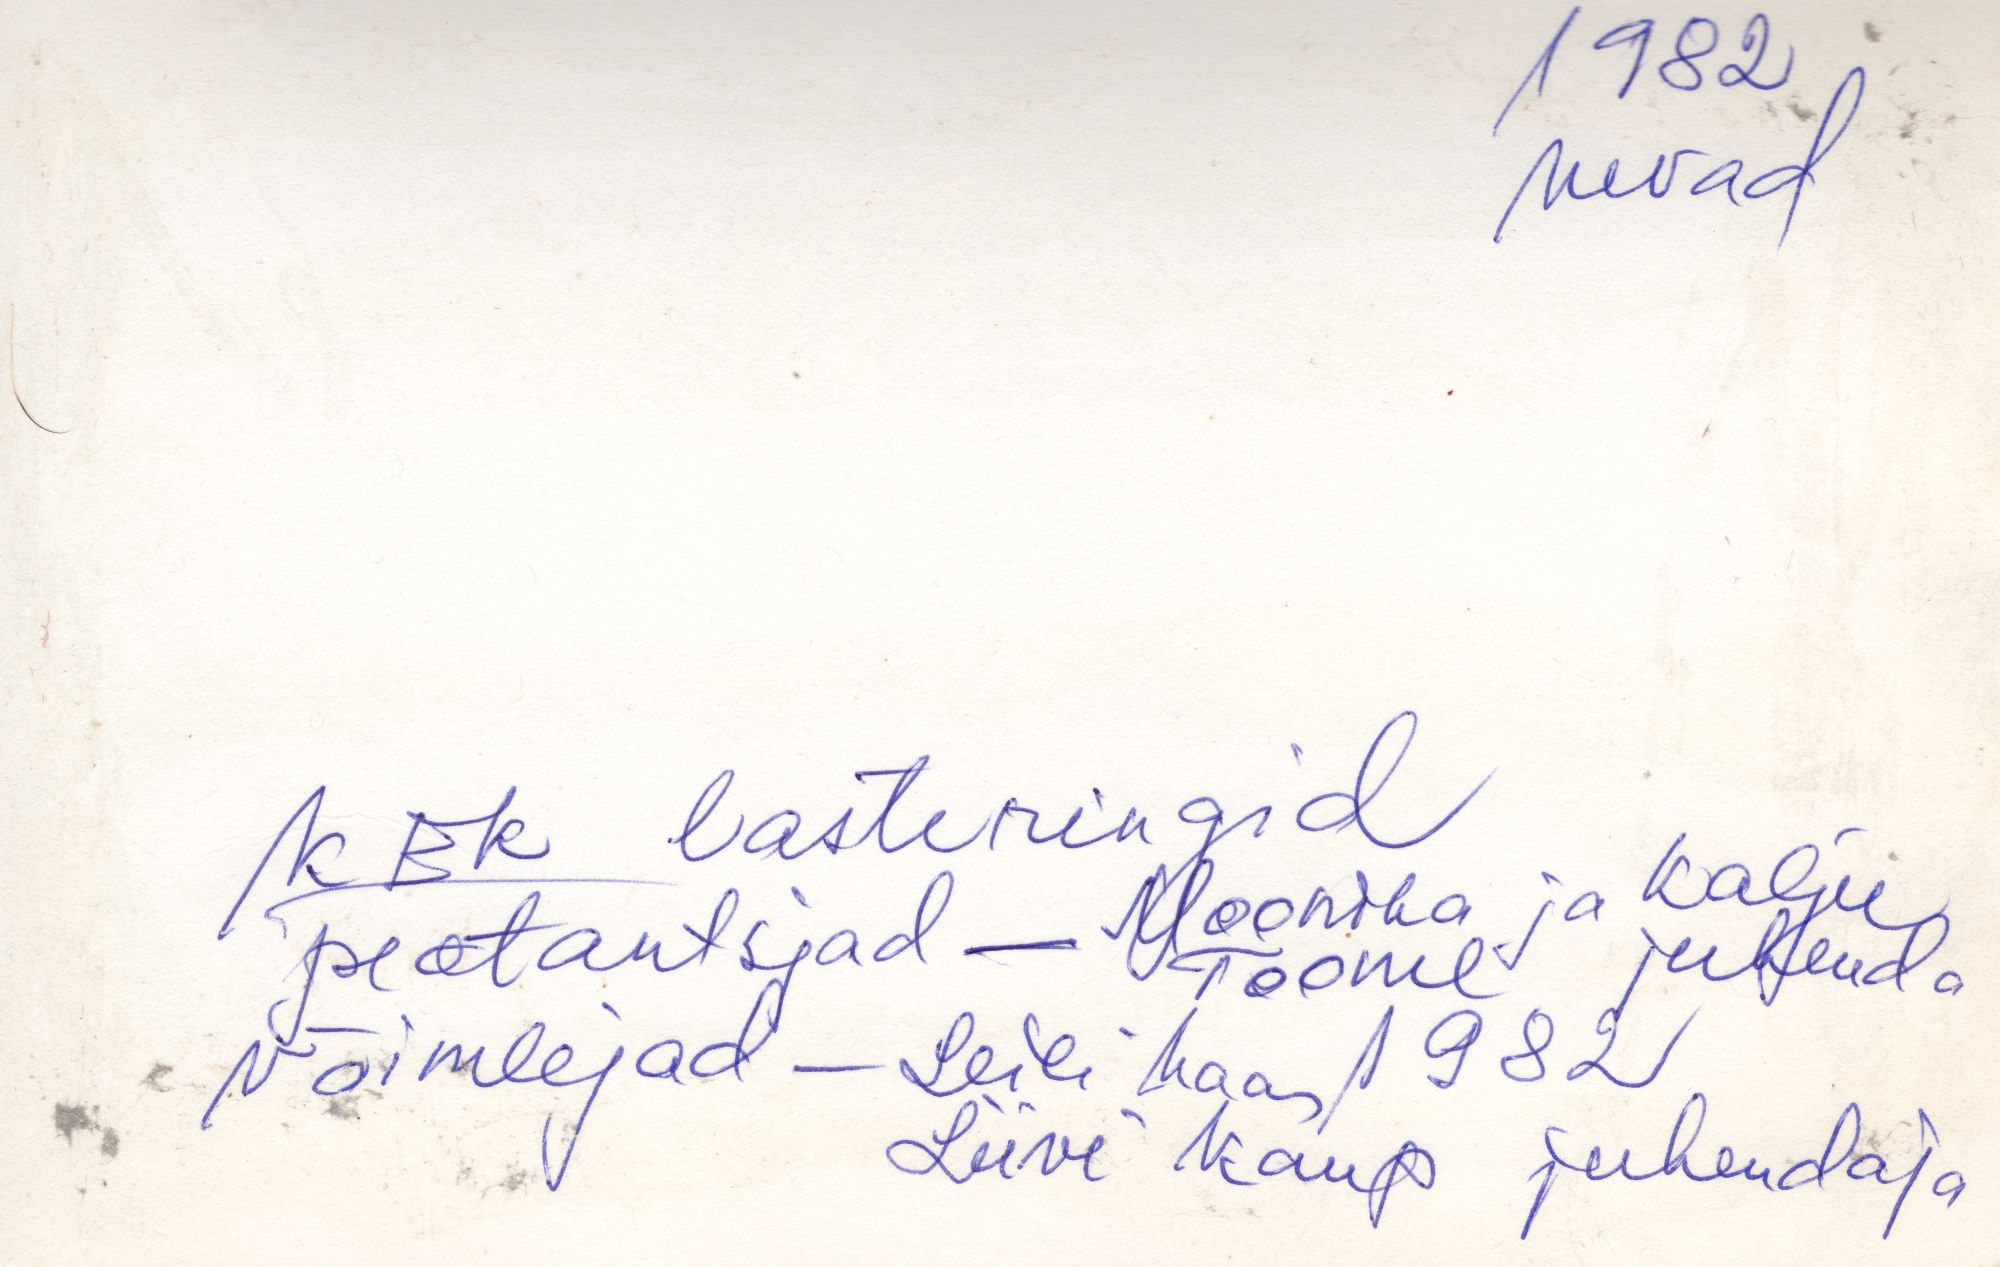 1982
kevad
KEK lasteringid
peotantsijad — Moonika ja Kalju
Toome juhenda
Võimlejad — Leili Haas 1982
Liivi Kaup juhendaja